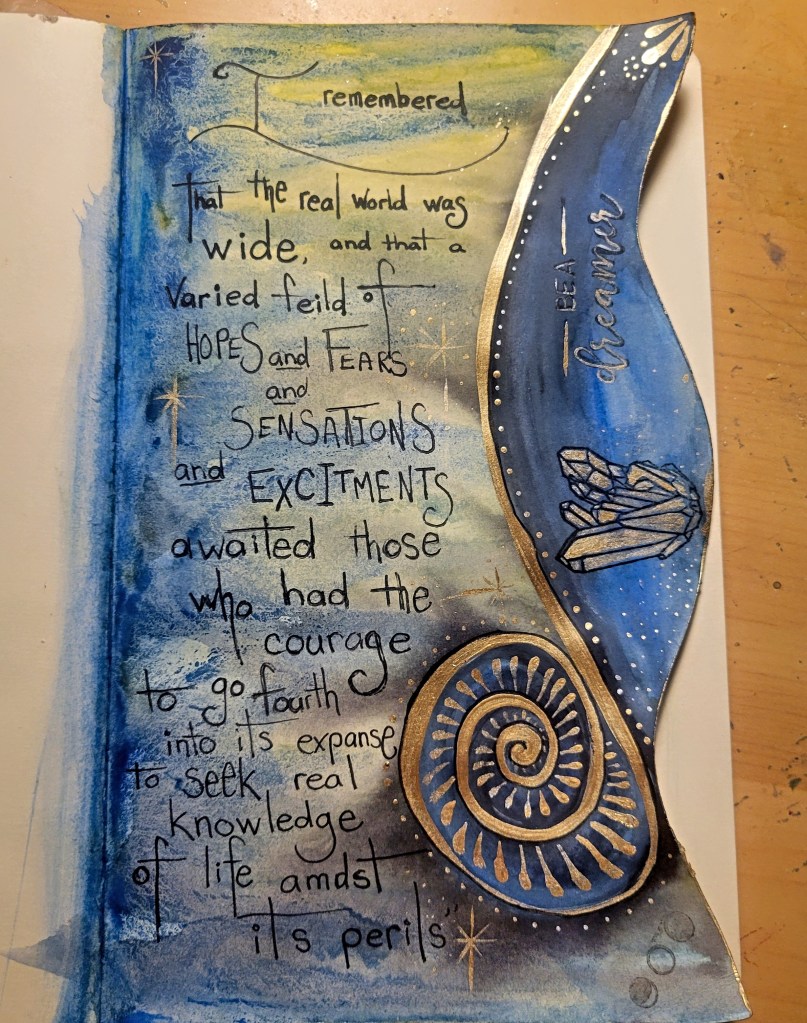 I remembered
That the real world was
wide, and that a
varied feild of
HOPES and FEARS
and
SENSATIONS
and EXCITMENTS
awaited those
who had the
courage
to go fourth
into its expanse
to seek real
knowledge
of life amdst
its perils"
BE A
dreamer